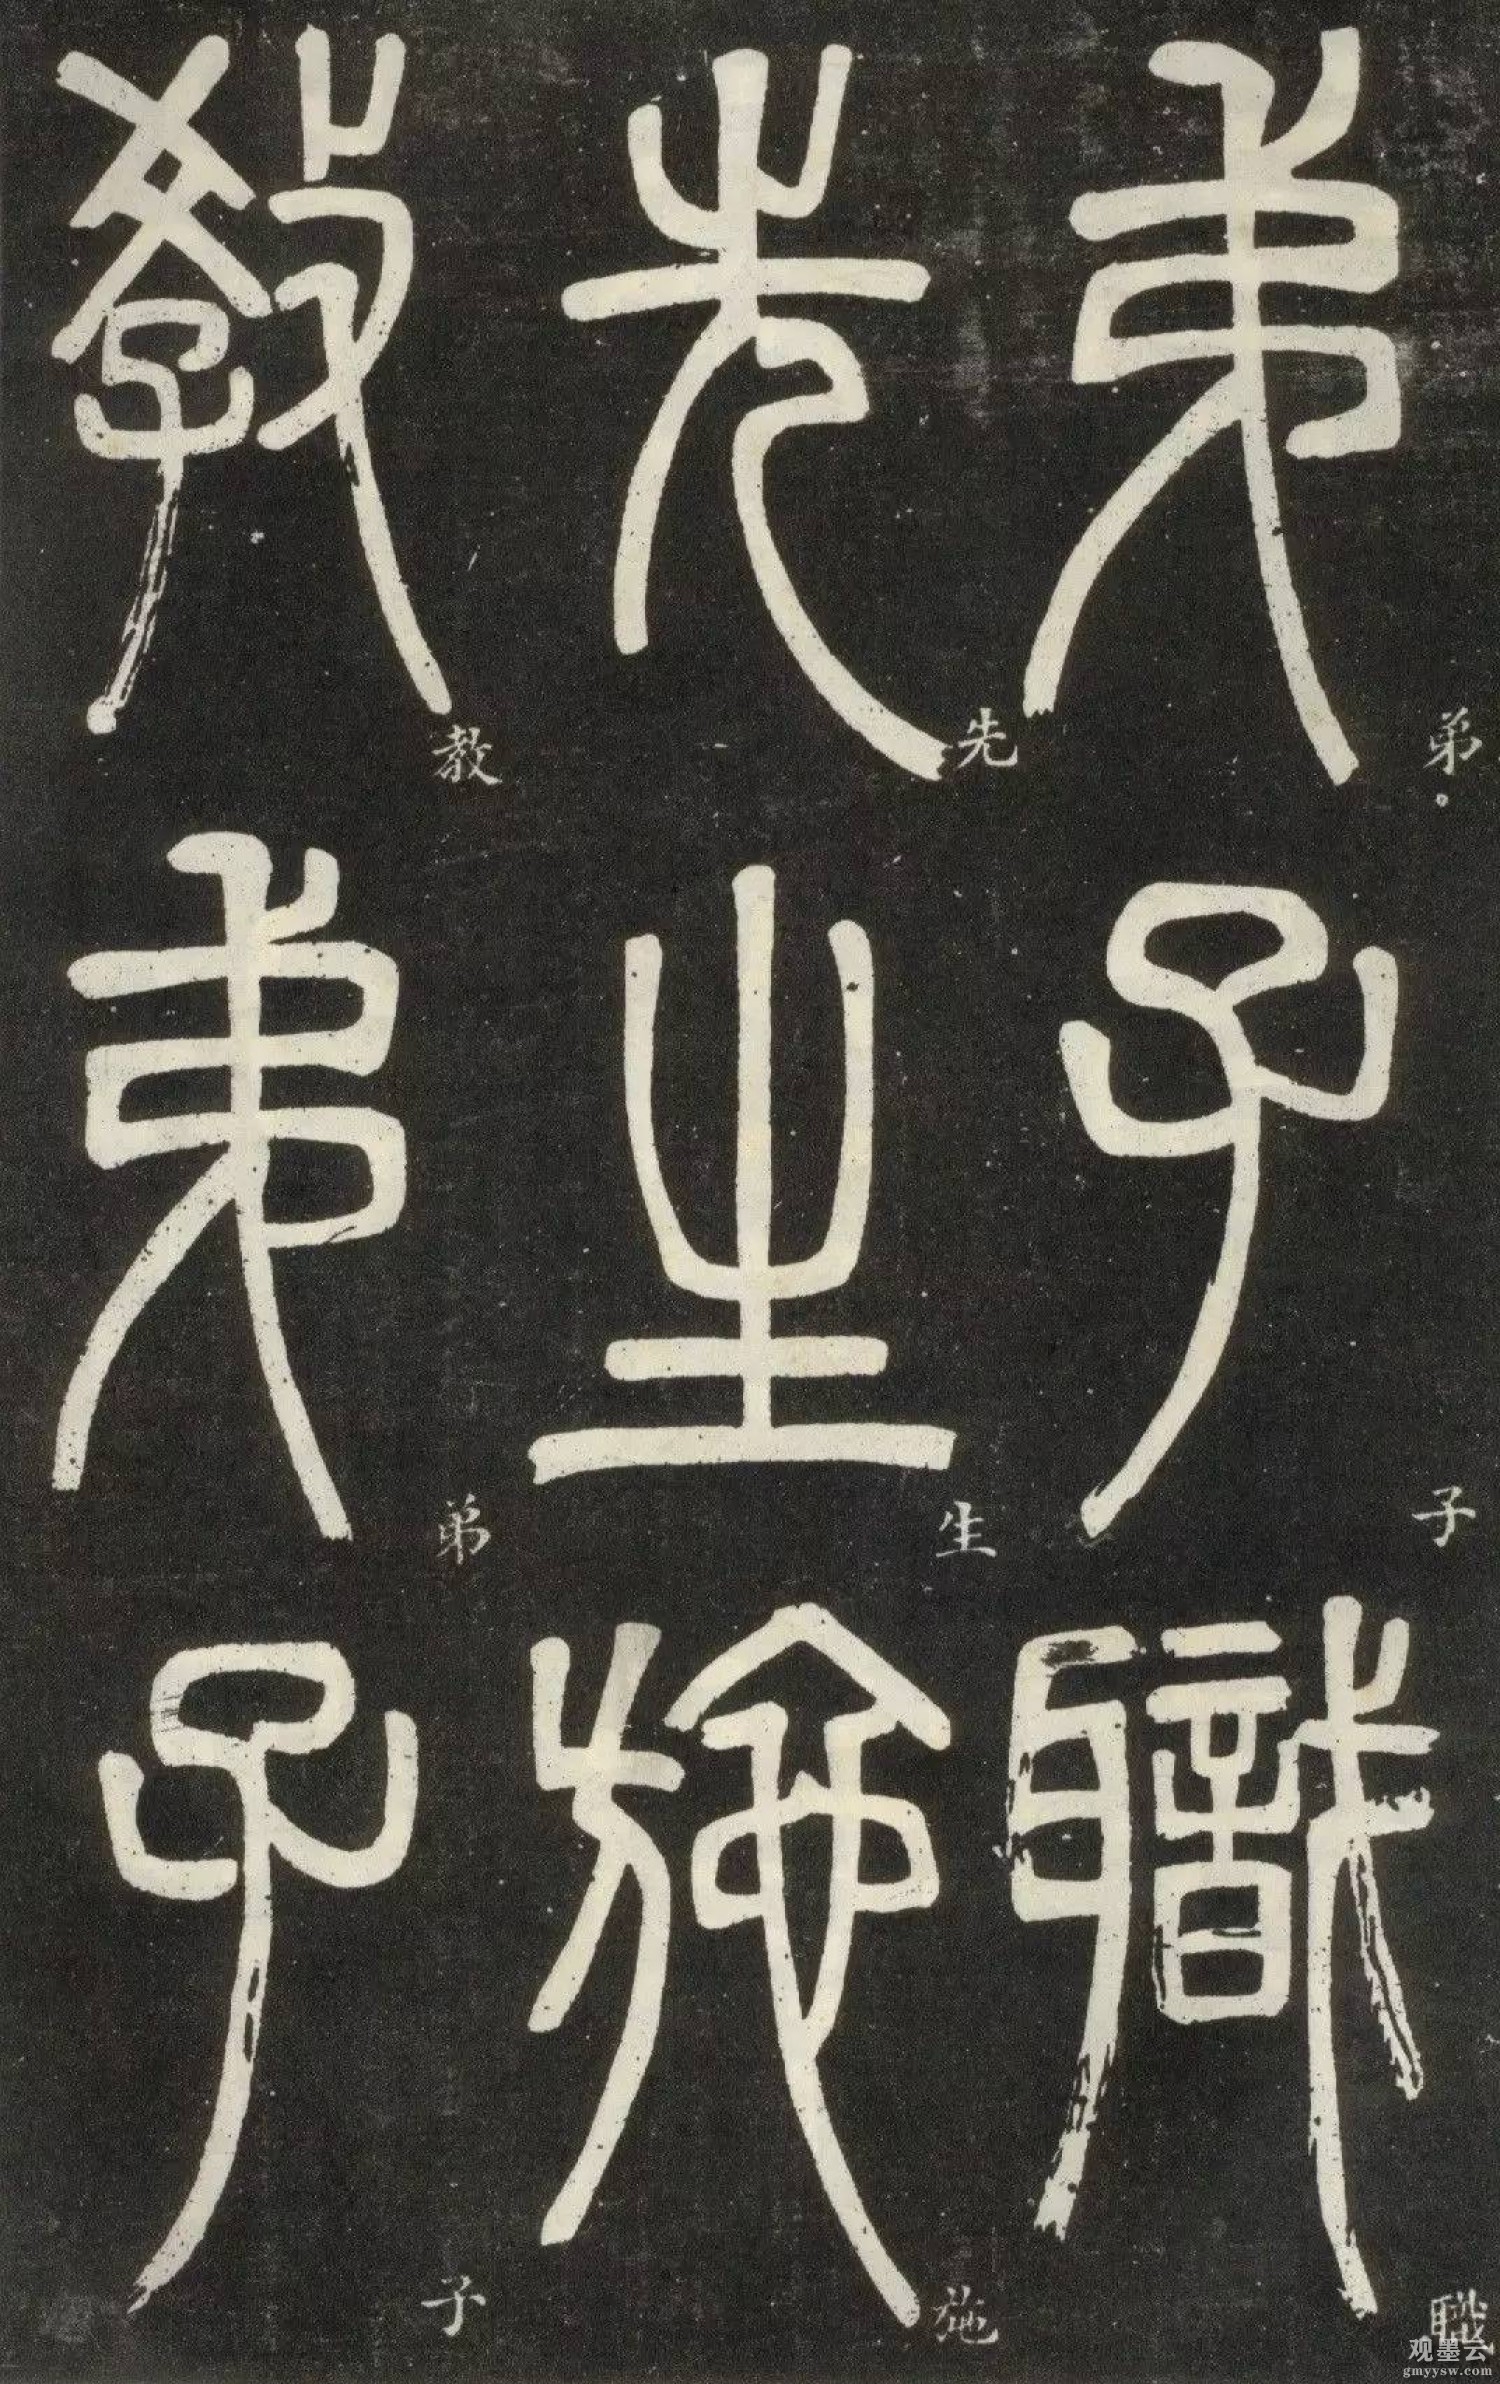 弟子職
弟子職
先生施
先生施
教弟子
教弟子
观墨云
gmyysw.com